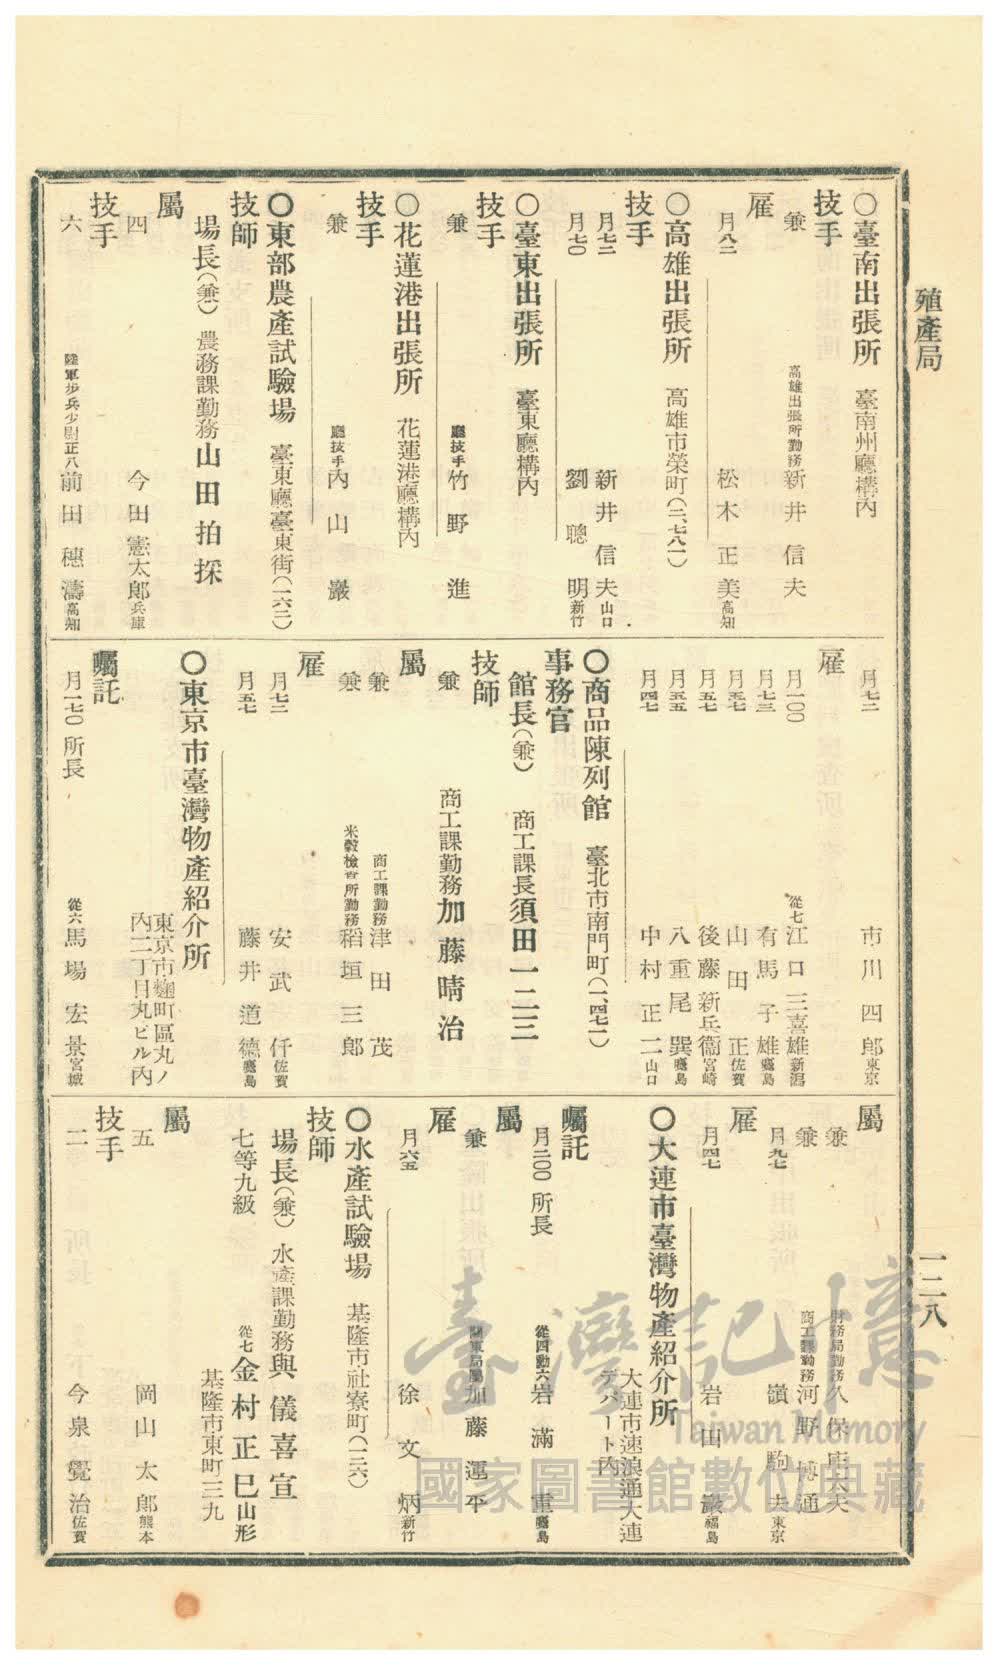 殖產局
一二八
〇臺南出張所　臺南州廳構內
技手
兼　高雄出張所勤務　新井信夫
雇
月八二　松木正美　高知
〇高雄出張所　高雄市榮町(二、七八一)
技手
月七二　新井信夫　山口
月七〇　劉聰明　新竹
〇臺東出張所　臺東廳構內
技手
兼　廳技手　竹野進
〇花蓮港出張所　花蓮港廳構內
技手
兼　廳技手　內山巖
〇東部農產試驗場　臺東廳臺東街(一六二)
技師
場長(兼)　農務課勤務　山田拍採
屬
四　今田憲太郎　兵庫
技手
六　陸軍步兵少尉正八　前田穗濤　高知
月七二　市川四郎　東京
雇
月一〇〇　從七　江口三喜雄　新潟
月七三　有馬子雄　鹿兒島
月五七　山田正　佐賀
月五七　後藤新兵衞　宮崎
月五五　八重尾巽　鹿兒島
月四七　中村正二　山口
〇商品陳列館　臺北市南門町(一、四七一)
事務官
館長(兼)　商工課長　須田一二三
技師
兼　商工課勤務　加藤晴治
屬
兼　商工課勤務　津田茂
兼　米穀檢查所勤務　稻垣三郎
雇
月七二　安武仟　佐賀
月五七　藤井道德　鹿兒島
〇東京市臺灣物產紹介所　東京市麴町區丸ノ
內二丁目丸ビル內
囑託
月一七〇　所長　從六　馬場宏景　宮城
屬
兼　財務局勤務　久保庫夫
兼　商工課勤務　河野博通
月九七　嶺駒夫　東京
雇
月四七　岩田巖　福島
〇大連市臺灣物產紹介所　大連市速浪通大連
デパート內
囑託
月二〇〇　所長　從四勳六　岩滿重　鹿兒島
屬
兼　關東局屬　加藤運平
雇
月六五　徐文炳　新竹
〇水產試驗場　基隆市社寮町(一二六)
技師
場長(兼)　水產課勤務　與儀喜宣
七等九級　從七　金村正巳　山形
基隆市東町二三九
屬
五　岡山太郎　熊本
技手
二　今泉覺治　佐賀
臺灣記憶
Taiwan Memory
國家圖書館數位典藏